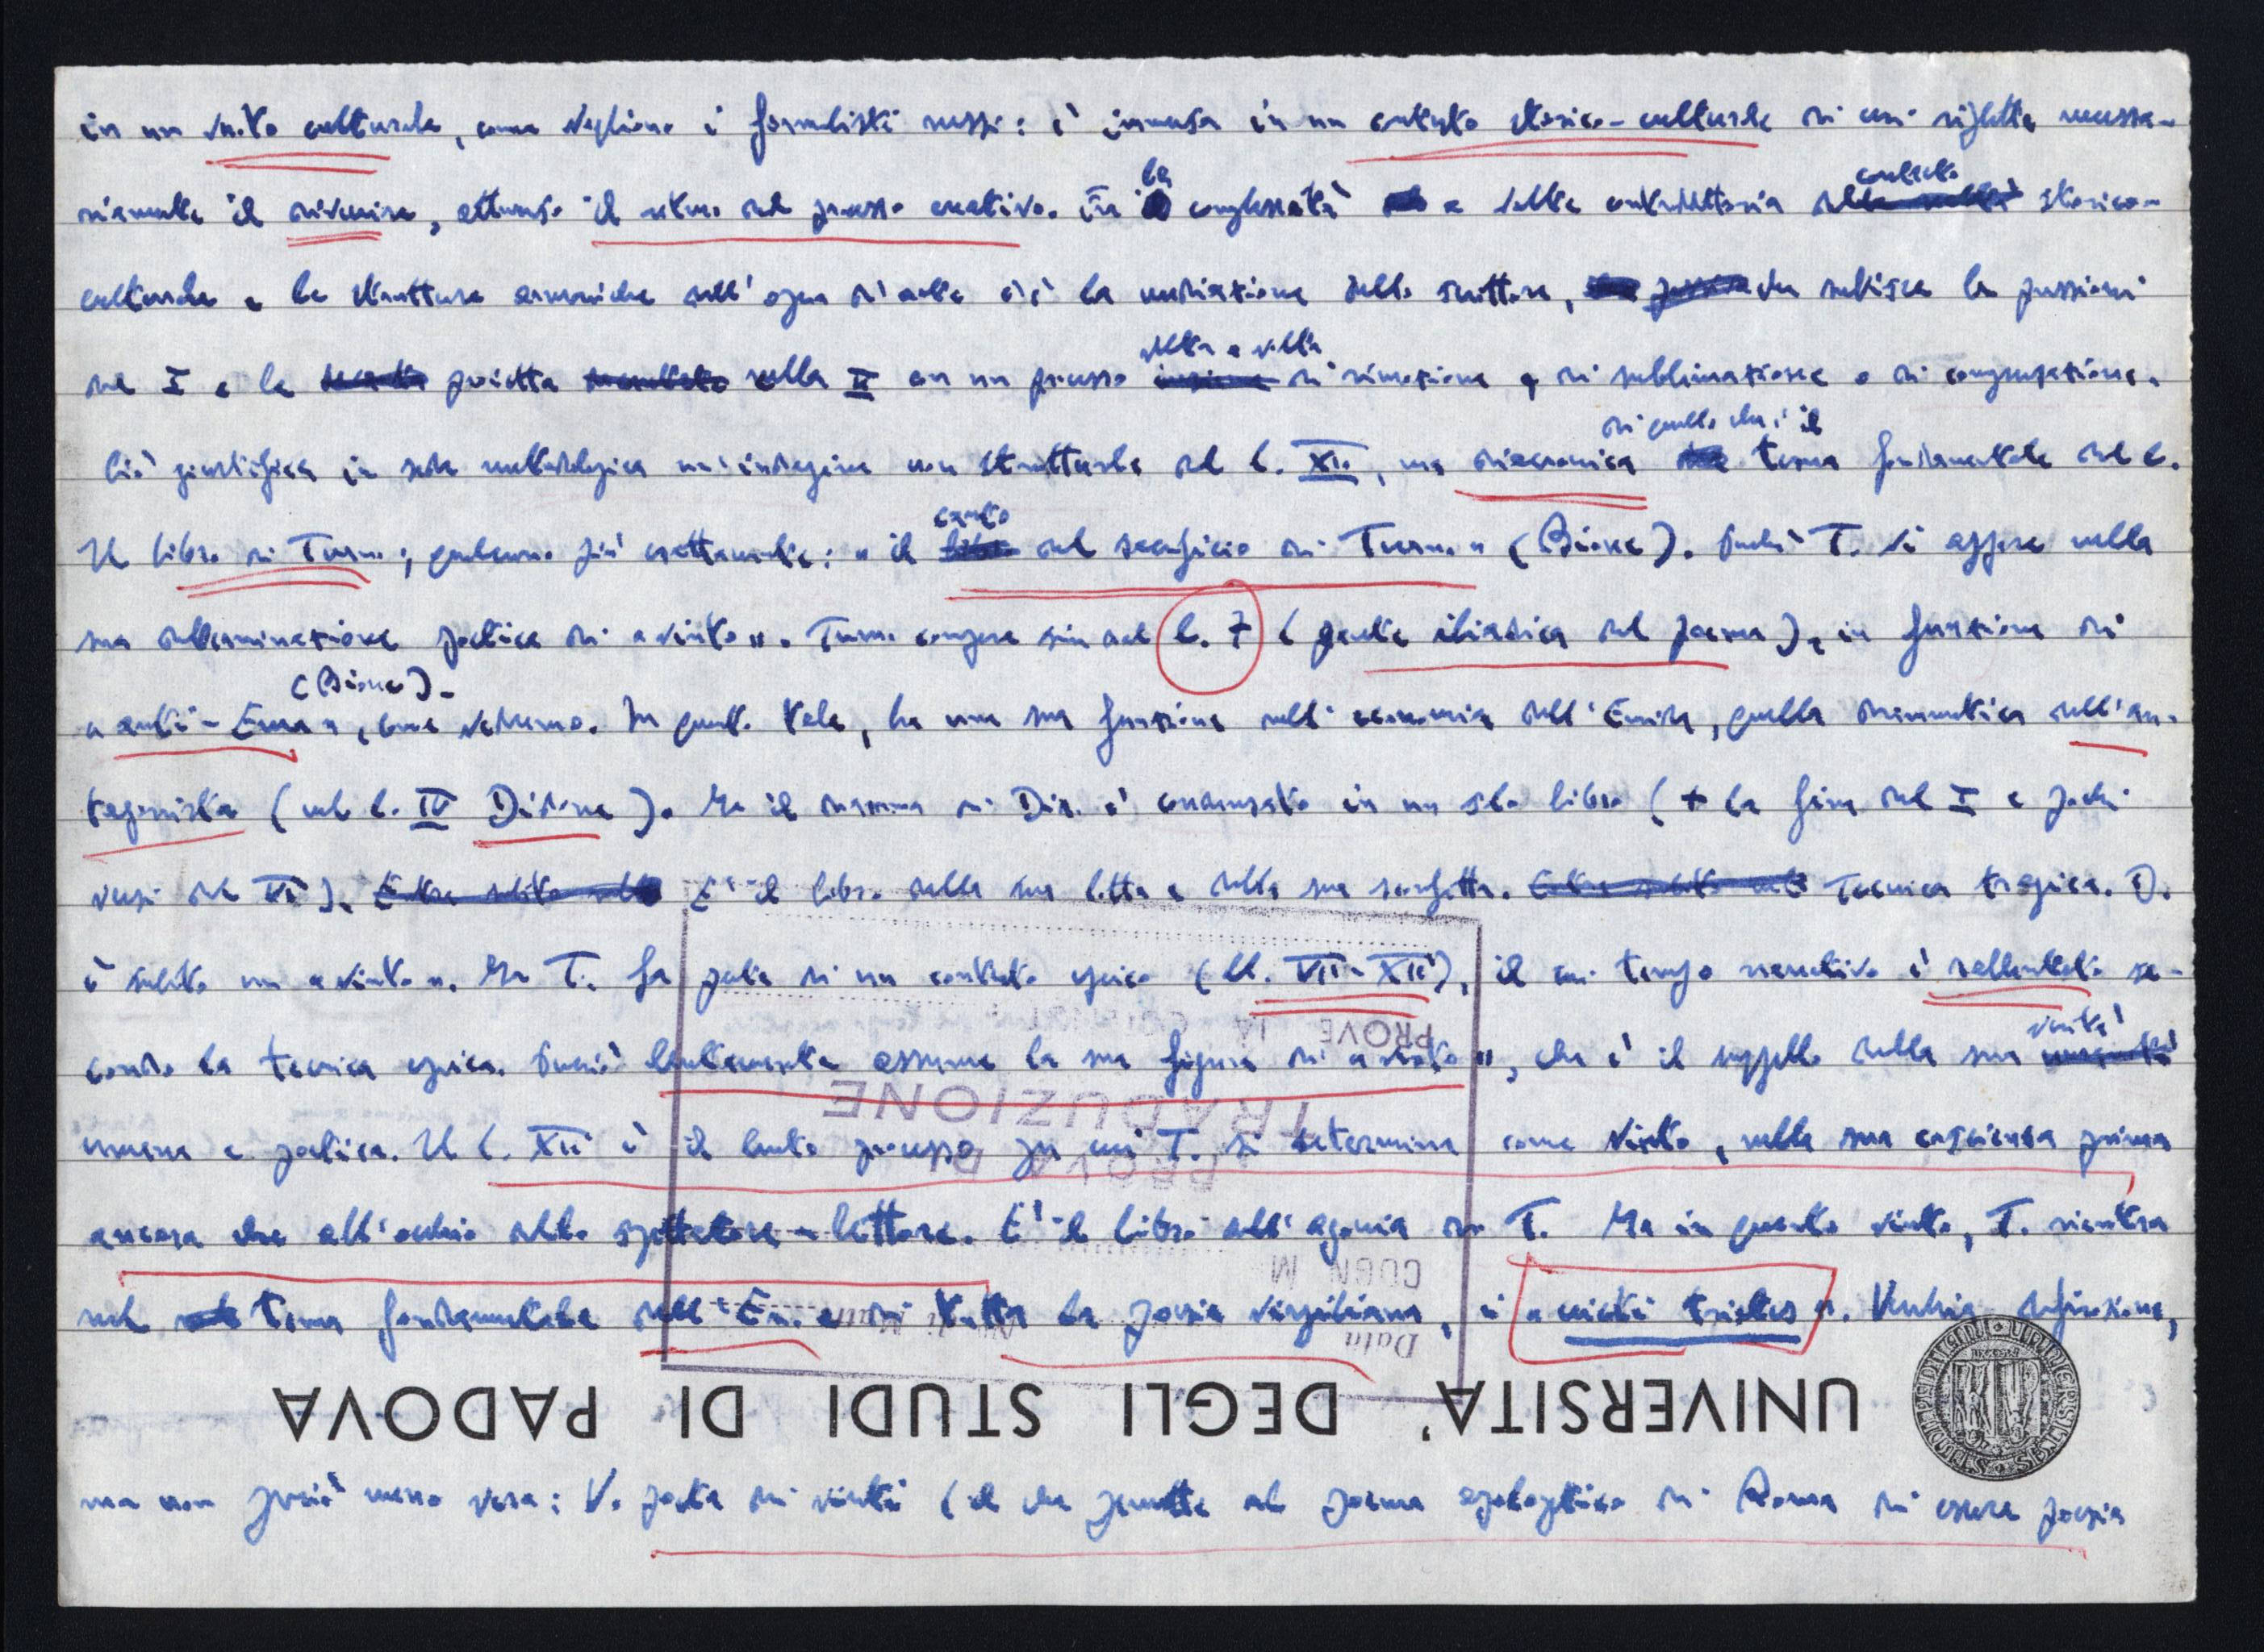 in un vuoto culturale, come vogliono i formalisti russi: è immersa in un contesto storico-culturale di cui riflette necessa-
riamente il divenire, attraverso il ritmo del processo creativo. Fra la complessità e contraddittoria contesto storico-
culturale e le strutture armoniche dell'opera d'arte c'è la mediazione dello scrittore, che subisce le pressioni
del I e le proietta nella II con un processo di rimozione di sublimazione o di compensazione.
Ciò giustifica in sede metodologica un'indagine non strutturale del l. XII, ma diacronica di quello che è il tema fondamentale del l.
Il libro di Turno; più esattamente: « il canto del sacrificio di Turno » (Bione). Perché T. vi appare nella
sua determinazione poetica di « vinto ». Turno compare sin dal l. 7 (parte iliadica del poema), in funzione di
« anti-Enea » (Bione), come vedremo. In quanto tale, ha una sua funzione nell'economia dell'Eneide, quella drammatica dell'an-
tagonista (nel l. IV Didone). Ma il dramma di Did. è condensato in un solo libro (+ la fine del I e pochi
versi del VI). E' il libro della sua lotta e della sua sconfitta. Tecnica tragica. D.
è subito un « vinto ». Ma T. fa parte di un contesto epico (ll. VII-XII), il cui tempo narrativo è rallentato se-
condo la tecnica epica. Perciò lentamente assume la sua figura di « vinto », che è il suggello della sua verità
umana e poetica. Il l. XII è il lento processo per cui T. si determina come vinto, nella sua coscienza prima
ancora che all'occhio dello spettatore-lettore. E' il libro dell'agonia di T. Ma in quanto vinto, T. rientra
nel tema fondamentale dell'En. e di tutta la poesia virgiliana, i « victi tristes ». Vecchia definizione,
ma non perciò meno vera: V. poeta dei vinti (il che permette al poema apologetico di Roma di essere poesia
UNIVERSITA' DEGLI STUDI DI PADOVA
PROVE
PROVA DI
TRADUZIONE
COGN
Data